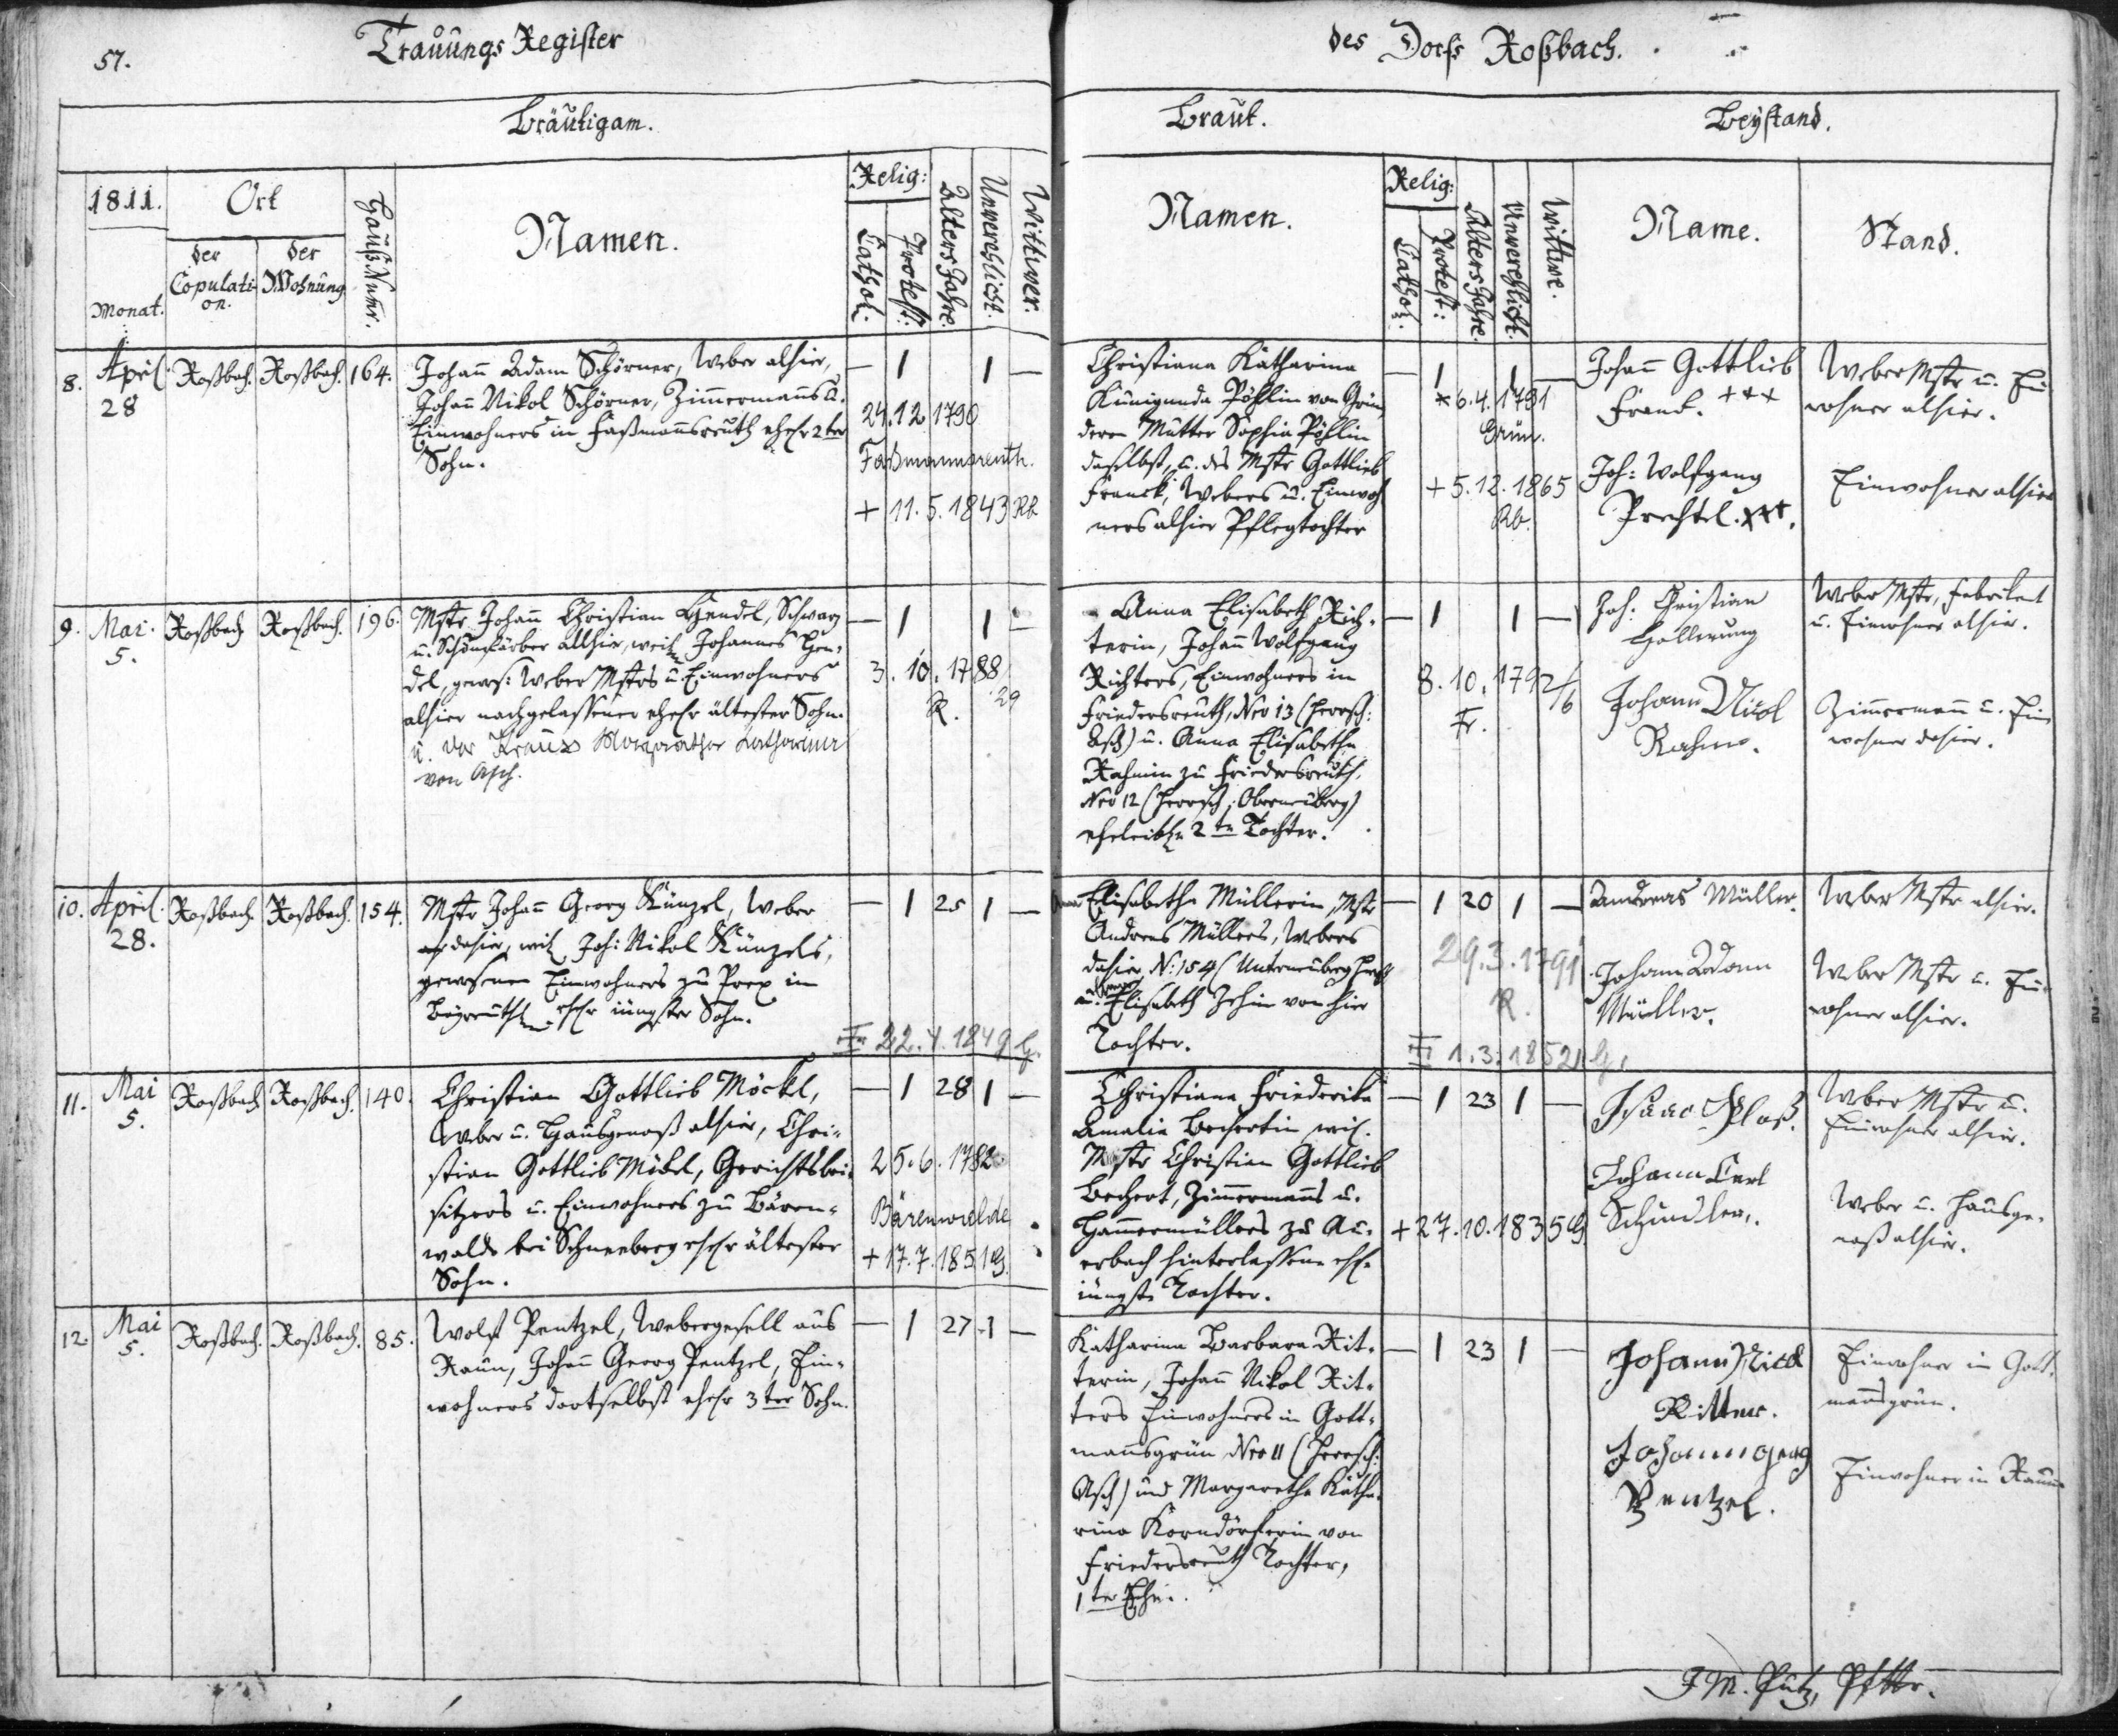 57.
Trauungs Register
des Dorfs Roßbach.
Bräutigam.
Braut.
Beystand.
1811.
Monat.
Ort
der Copulati-
on.
der Wohnung
Hauß Numr.
Namen.
Relig:
Cathol:
Protest:
Alters Jahre.
Unverehlicht.
Wittwer.
Namen.
Relig:
Cathol:
Protest:
Alters Jahre.
Unverehlicht.
Wittwe.
Name.
Stand.
8. April 28
Roßbach. Roßbach. 164.
Johann Adam Schörner, Weber alhier,
Johann Nikol Schörner, Zimmermanns u.
Einwohners in Faßmannsreuth ehel. 2ter
Sohn.
— 1 1 —
24.12.1790
Faßmannsreuth.
+ 11.5.1843 Rb
Christiana Katharina
Kunigunda Pößlin von Grün,
deren Mutter Sophia Pößlin
daselbst, u. des Mstr Gottlieb
Franck, Webers u. Einwoh
ners alhier Pflegtochter
— 1 1 —
* 6.4.1791
Grün.
+ 5.12.1865
Rb.
Johann Gottlieb
Franck. +++
Weber Mstr u. Ein
wohner alhier.
Joh: Wolfgang
Prechtel. xxx.
Einwohner alhier
9. Mai. 5.
Roßbach Roßbach. 196.
Mstr. Johann Christian Hendel, Schwarz
u. Schönfärber allhier, weil. Johannes Hen-
del, gewes: Weber Mstrs u. Einwohners
alhier nachgelassener ehel. ältester Sohn.
u. der Margaretha Katharina
von Asch.
— 1 1 —
3.10.1788
R. 29
Anna Elisabeth Rich-
terin, Johann Wolfgang
Richters, Einwohners in
Friedersreuth, Nro 13 (Herrsch:
Asch) u. Anna Elisabetha
Rahmin zu Friedersreuth.
Nro 12 (Herrsch: Oberneuberg)
eheleibl. 2te Tochter.
— 1 1 —
8.10.1792/6
Fr.
Joh: Christian
Hollerung
Weber Mstr, Fabrikant
u. Einwohner alhier.
Johann Nicol
Rahm.
Zimmermann u. Ein
wohner dahier.
10. April. 28.
Roßbach Roßbach. 154.
Mstr Johann Georg Künzel, Weber
dahier, weil. Joh: Nikol Künzels,
gewesenen Einwohners zu Prex im
Bayreuth. ehel. jüngster Sohn.
— 1 25 1 —
22.4.1849 G.
Anna Elisabetha Müllerin, Mstr
Andreas Müllers, Webers
dahier, N: 154 (Unterneuberg Hersch
u. Elisabeth Zehin von hier
Tochter.
— 1 20 1 —
29.3.1791
R.
1.3.1852 G.
Andreas Müller.
Weber Mstr alhier.
Johann Adam
Müller.
Weber Mstr u. Ein-
wohner alhier.
11. Mai 5.
Roßbach Roßbach. 140.
Christian Gottlieb Möckl,
Weber u. Hausgenoß alhier, Chri-
stian Gottlieb Möckl, Gerichtsbei-
sitzers u. Einwohners zu Bären-
walde bei Schneeberg ehel. ältester
Sohn.
— 1 28 1 —
25.6.1782
Bärenwalde
+ 17.7.1851 G.
Christiana Friederika
Amalia Bechertin weil.
Mstr Christian Gottlieb
Bechert, Zimmermanns u.
Hammermüllers zu Au-
erbach hinterlassene ehel.
jüngste Tochter.
— 1 23 1 —
+ 27.10.1835 G.
Isaac Ploß.
Weber Mstr u.
Einwohner alhier.
Johann Carl
Schindler.
Weber u. Hausge-
noß alhier.
12. Mai 5.
Roßbach. Roßbach. 85.
Wolf Pentzel, Webergesell aus
Raun, Johann Georg Pentzel, Ein-
wohners dortselbst ehel. 3ter Sohn.
— 1 27 1 —
Katharina Barbara Rit-
terin, Johann Nikol Rit-
ters Einwohners in Gott-
mannsgrün Nro 11 (Herrsch:
Asch) und Margaretha Katha-
rina Korndörferin von
Friedersreuth Tochter,
1ter Ehe.
— 1 23 1 —
Johann Nicol
Ritter.
Einwohner in Gott-
mannsgrün.
Johann Georg
Pentzel.
Einwohner in Raun
J M. Putz, Pfrr.